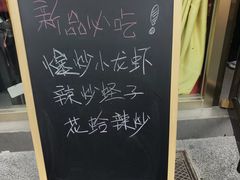 新品必吃！
爆炒小龙虾
辣炒蛏子
花蛤辣炒